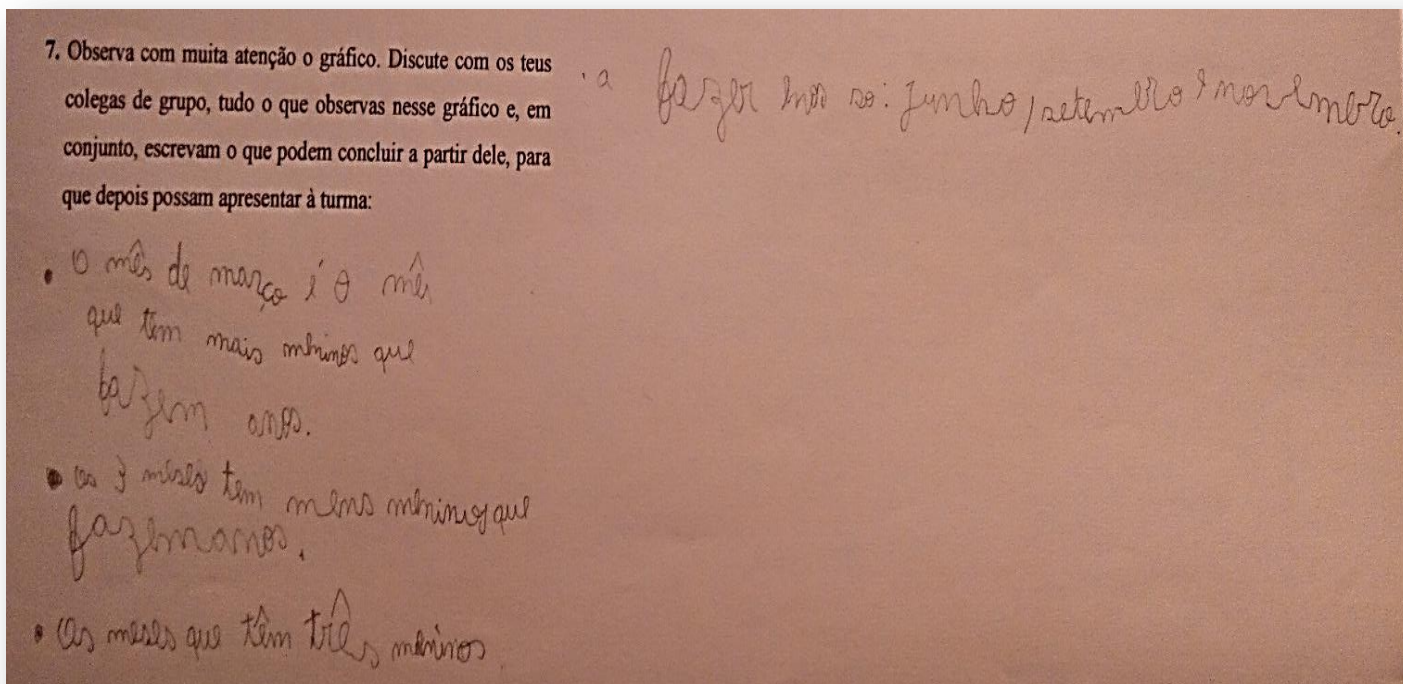 7. Observa com muita atenção o gráfico. Discute com os teus
colegas de grupo, tudo o que observas nesse gráfico e, em
conjunto, escrevam o que podem concluir a partir dele, para
que depois possam apresentar à turma:
• O mês de março é o mês
que tem mais meninos que
fazem anos.
• os 3 meses tem menos meninos que
fazem anos.
• Os meses que têm três meninos
a fazer anos so: Junho, setembro e novembro.